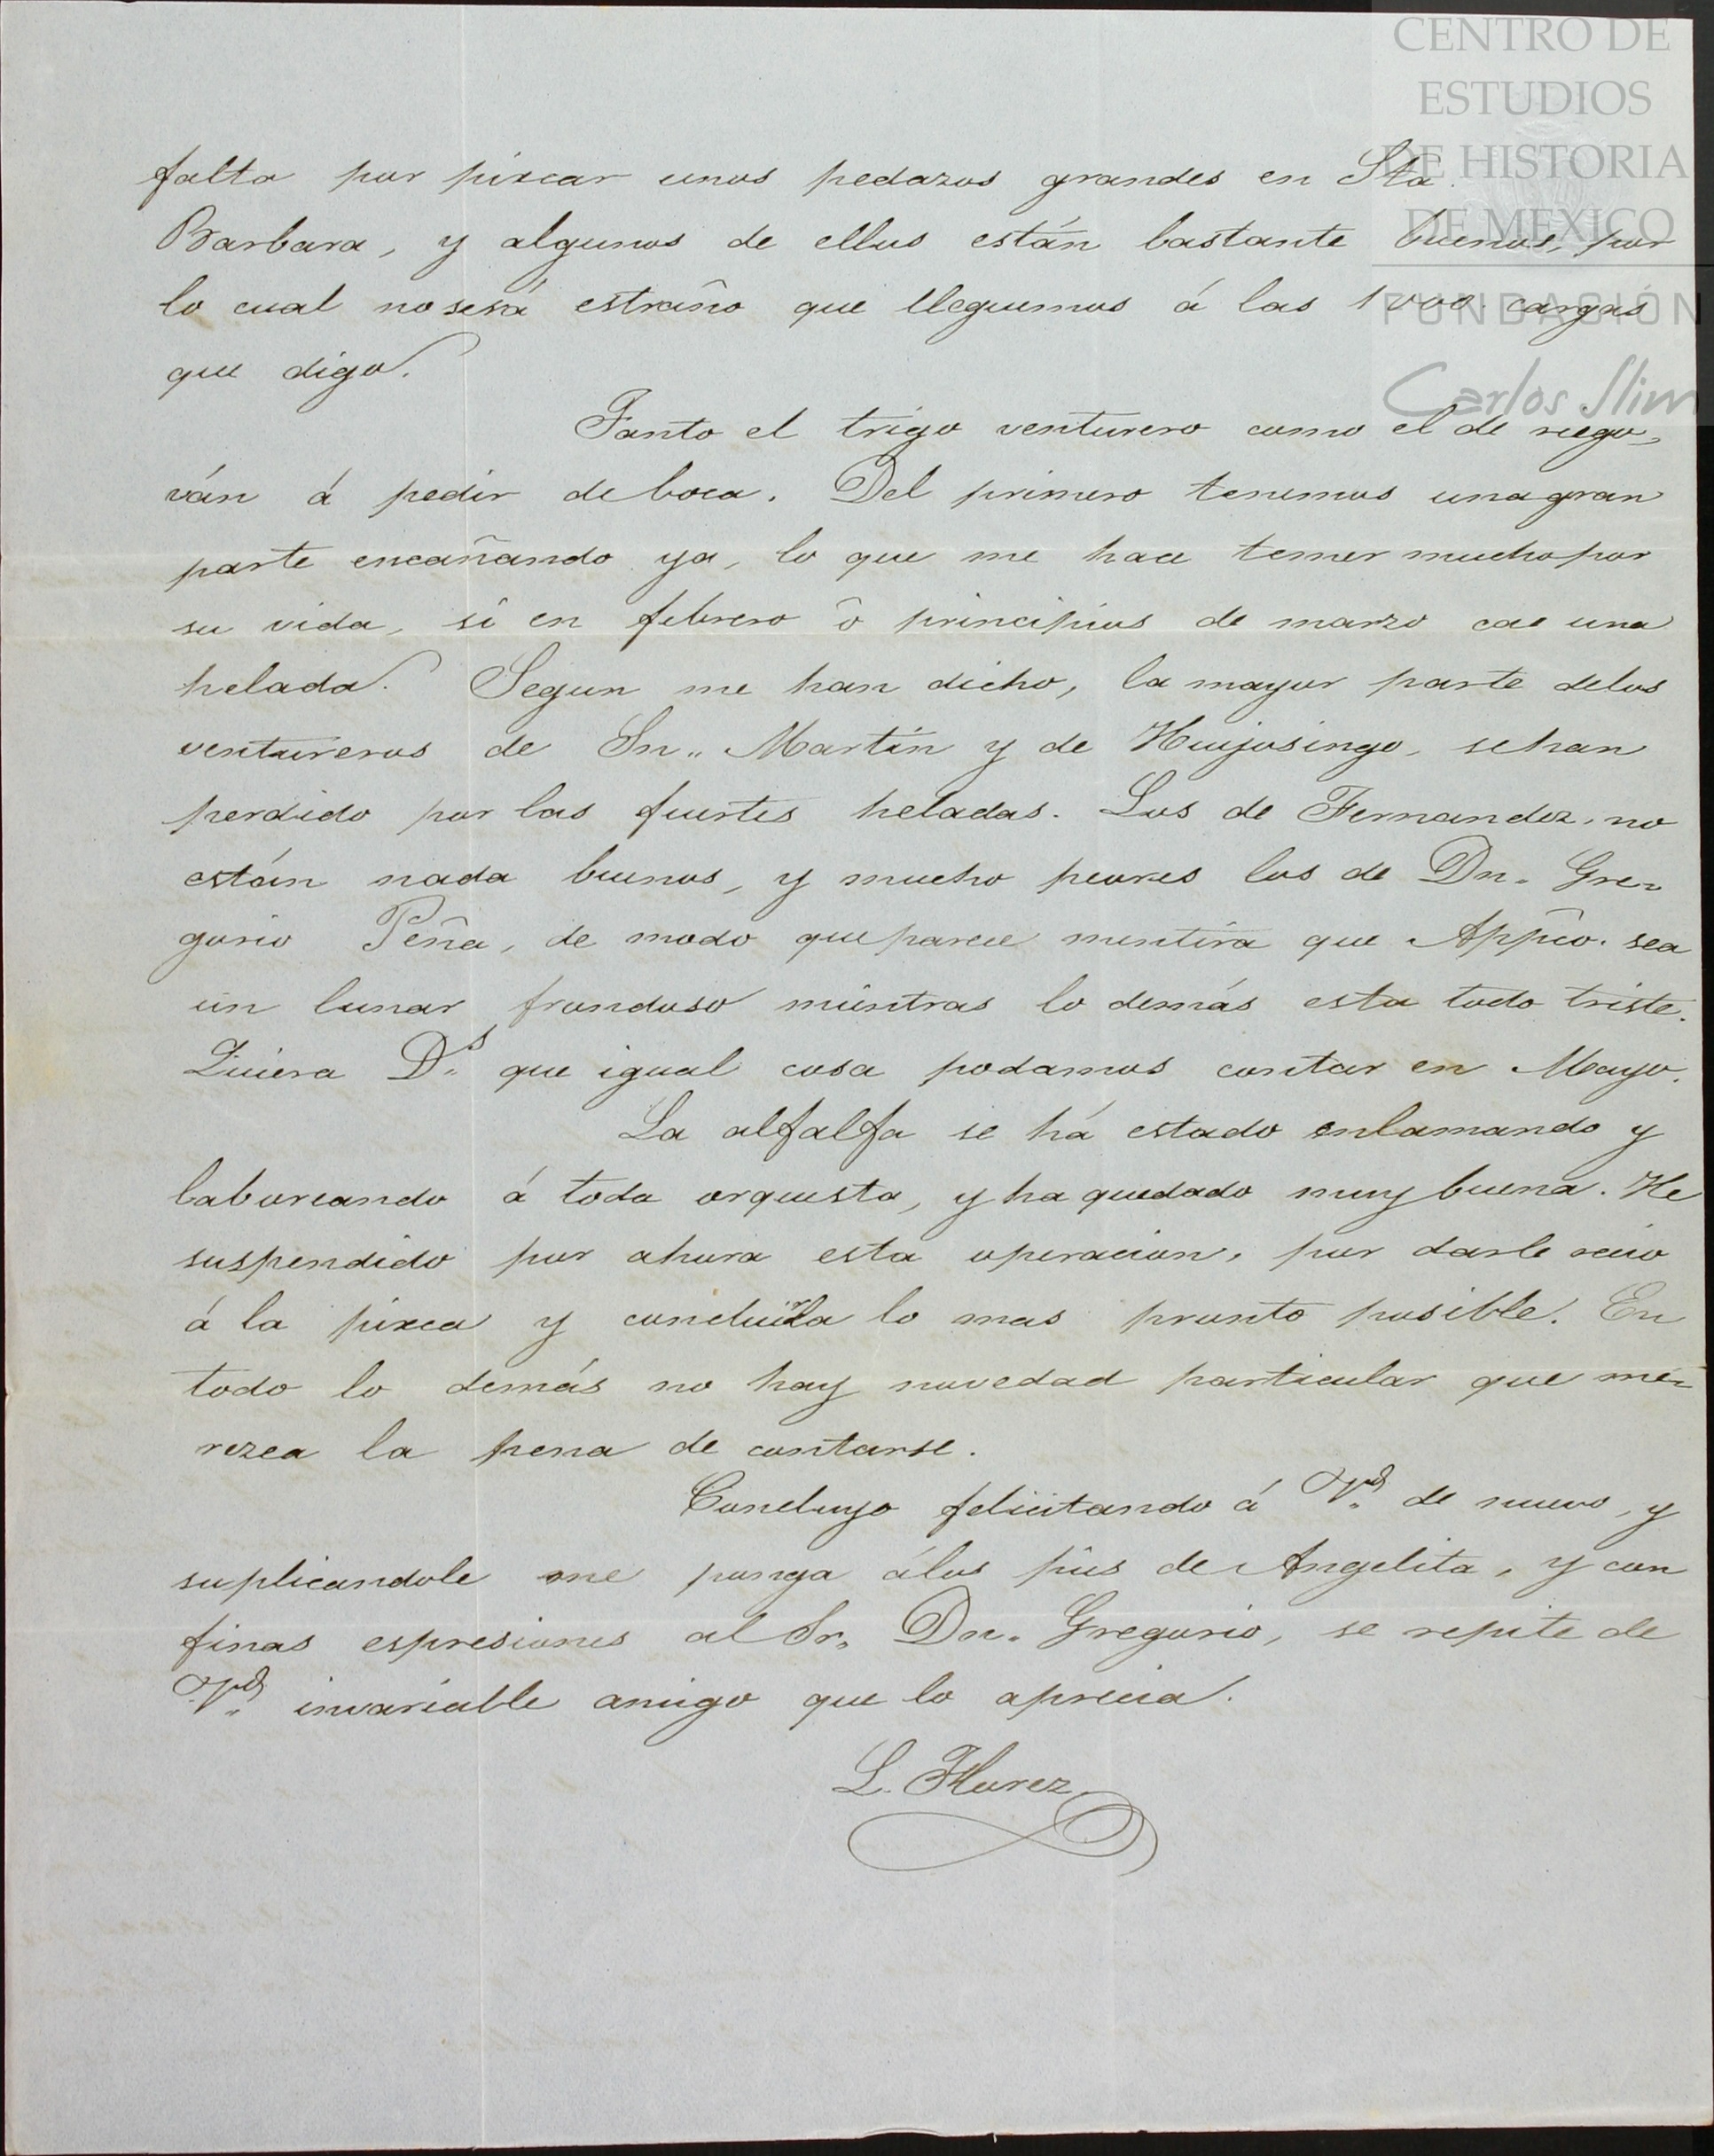 CENTRO DE
ESTUDIOS
DE HISTORIA
DE MEXICO
FUNDACIÓN
Carlos Slim
falta por pixcar unos pedazos grandes en Sta.
Barbara, y algunos de ellos están bastante buenos, por
lo cual no será estraño que lleguemos á las 1000. cargas
que digo.
Tanto el trigo venturero como el de riego,
ván á pedir de boca. Del primero tenemos una gran
parte encañando ya, lo que me hace temer mucho por
su vida, si en febrero ó principios de marzo cae una
helada. Segun me han dicho, la mayor parte delos
ventureros de Sn. Martín y de Huijosingo, sehan
perdido por las fuertes heladas. Los de Fernandez, no
están nada buenos, y mucho peores los de Dn. Gre-
gorio Peña, de modo que parece mentira que Appco. sea
un lunar frondoso mientras lo demás esta todo triste.
Quiera Ds. que igual cosa podamos contar en Mayo.
La alfalfa se há estado enlamando y
laboreando á toda orquesta, y ha quedado muy buena. He
suspendido por ahora esta operacion, por darle recio
á la pixca y concluirla lo mas pronto posible. En
todo lo demás no hay novedad particular que me-
rezca la pena de contarse.
Concluyo felicitando á Vd. de nuevo, y
suplicandole me ponga álos piés de Angelita, y con
finas espresiones al Sr. Dn. Gregorio, se repite de
Vd. invariable amigo que lo aprecia.
L. Florez